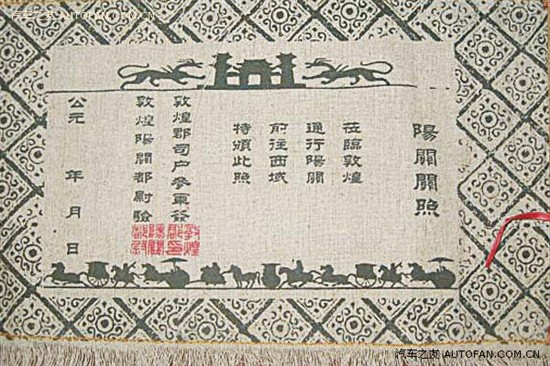 陽關關照
莅臨敦煌
通行陽關
前往西域
特頒此照
敦煌郡司户參軍簽
敦煌陽關都尉驗
公元 年 月 日
敦煌郡印
陽關都尉
汽车之友 AUTOFAN.COM.CN
汽车之友 WWW.AUTOFAN.COM.CN